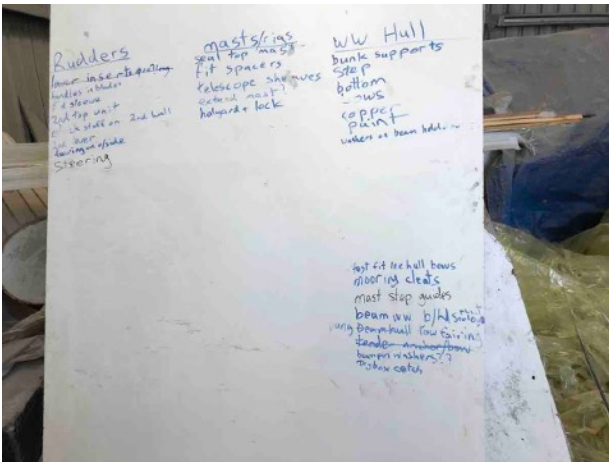 Rudders
lower inserts
handles in blades
sleeve
2nd top unit
stuff on 2nd hull
lever
Steering
masts/rigs
seal top mast
fit spacers
telescope sheaves
extend mast?
halyard + lock
WW Hull
bunk supports
step
bottom
copper
paint
washers on beam
test fit lee hull bows
mooring cleats
mast stop guides
beam ww b/hd
beam hull low fairing
tender anchor/bow
bumper washers??